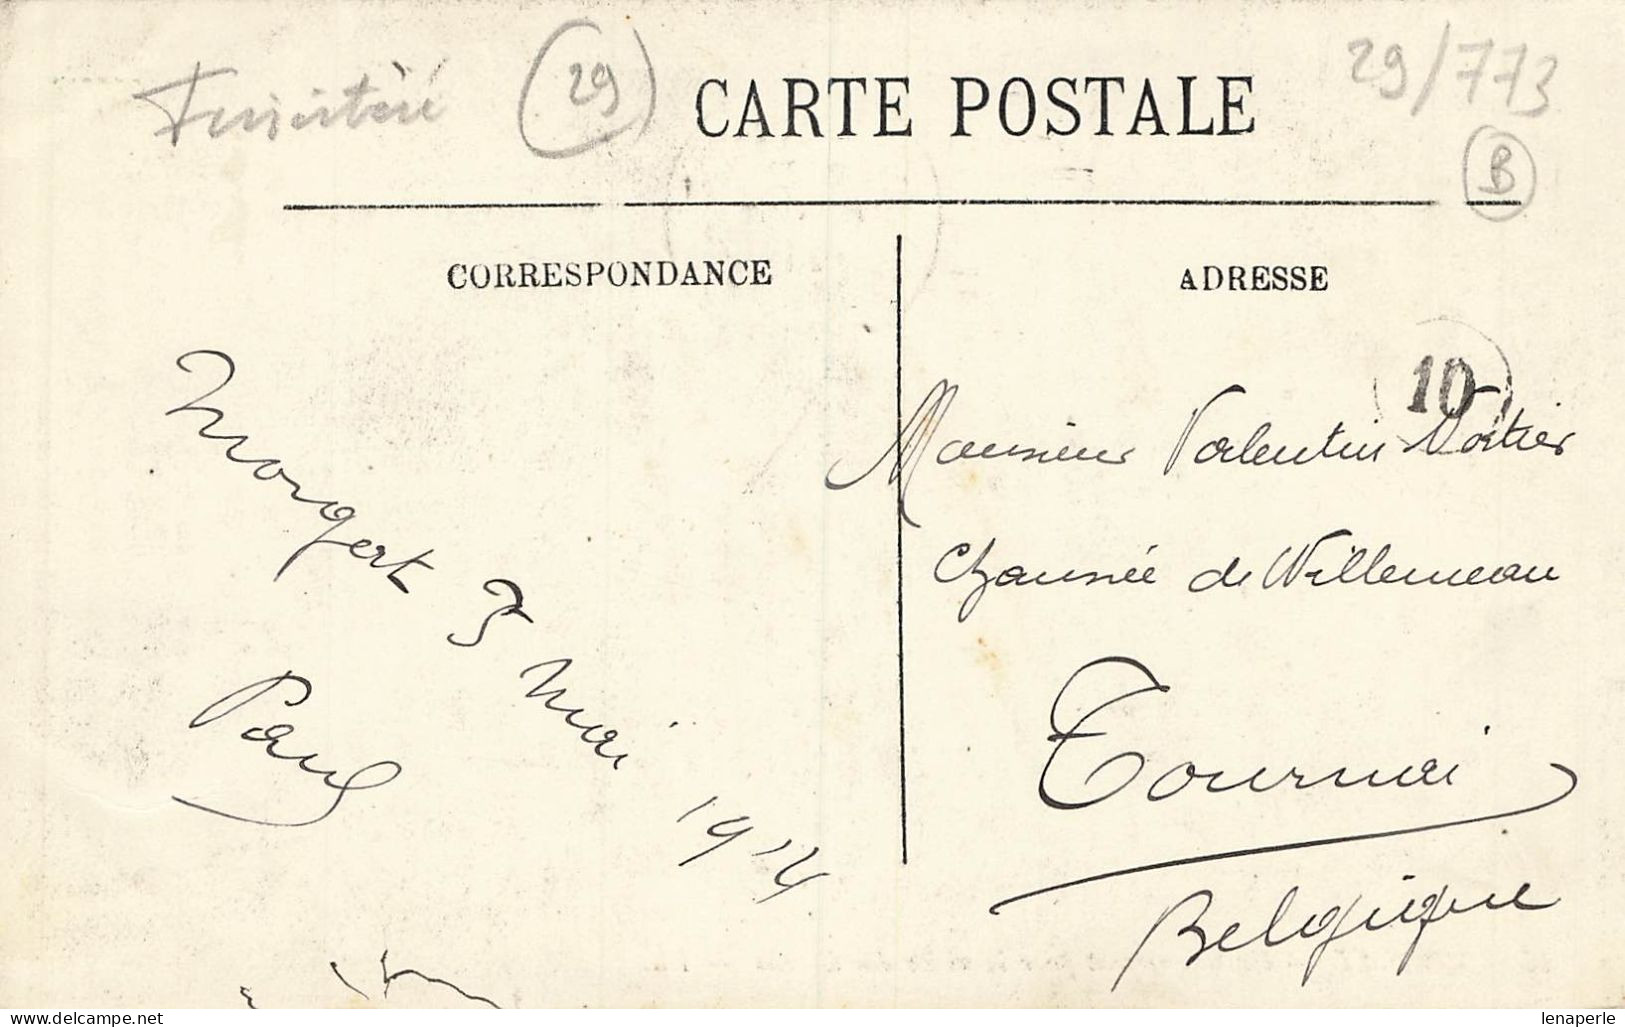 Finistère
29
CARTE POSTALE
29/773
B
CORRESPONDANCE
ADRESSE
10
Morgat 3 mai 1914
Paul
Monsieur Valentin
Chaussée de Willemeau
Tournai
Belgique
www.delcampe.net
lenaperle